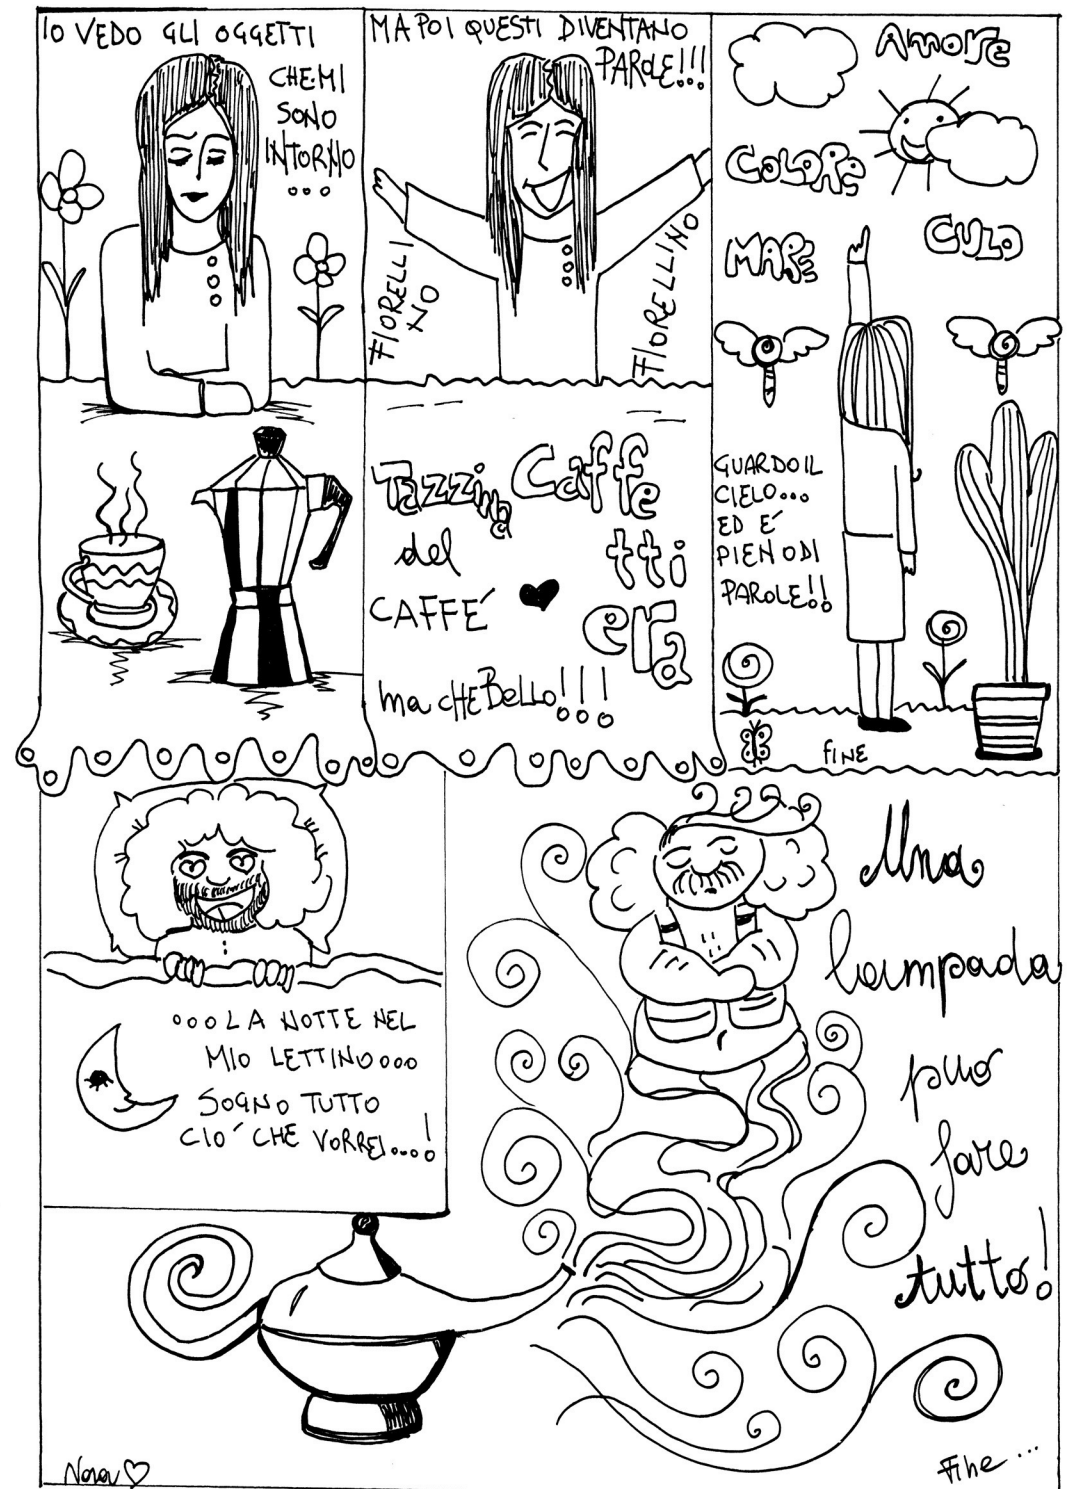 IO VEDO GLI OGGETTI
CHE MI
SONO
INTORNO
...
MA POI QUESTI DIVENTANO
PAROLE!!!
FIORELLI
NO
FIORELLINO
Tazzina
del
CAFFE'
Caffe
tti
era
ma CHE BELLO!!!
Amore
COLORE
MARE
CULO
GUARDO IL
CIELO...
ED E'
PIENO DI
PAROLE!!
FINE
...LA NOTTE NEL
MIO LETTINO...
SOGNO TUTTO
CIO' CHE VORREI....!
Una
lampada
può
fare
tutto!
Nora
Fine...